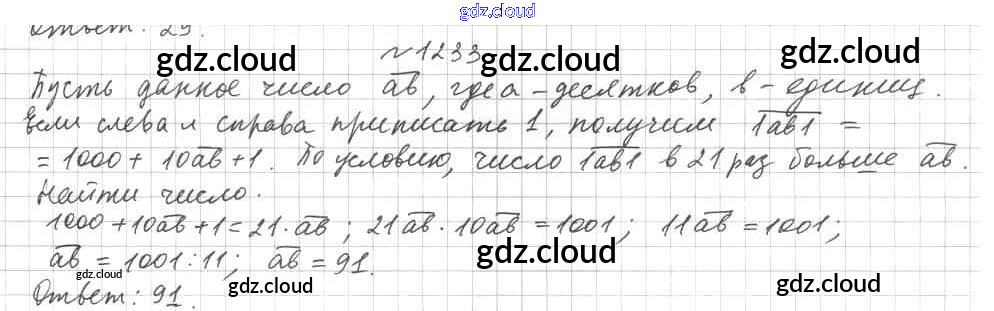 gdz.cloud
Ответ: 29.
№1233
gdz.cloud gdz.cloud
Пусть данное число ab, где a - десятков, b - единиц.
Если слева и справа приписать 1, получим 1ab1 =
= 1000 + 10ab + 1. По условию, число 1ab1 в 21 раз больше ab.
Найти число.
1000 + 10ab + 1 = 21 · ab ; 21ab - 10ab = 1001 ; 11ab = 1001 ;
gdz.cloud
ab = 1001 : 11 ; ab = 91.
gdz.cloud
Ответ: 91.
gdz.cloud gdz.cloud